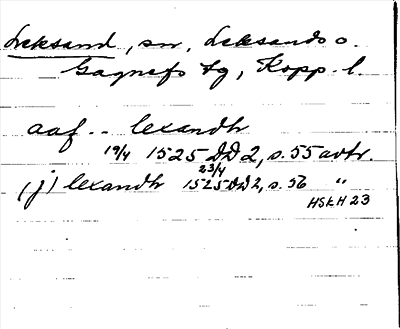 Leksand, sn, Leksands o.
Gagnefs tg, Kopp. l.
aaf .. lexandh
19/4 1525 DD 2, s. 55 avtr.
23/4
(j) lexandh 1525 DD 2, s. 56 "
HSkH 23